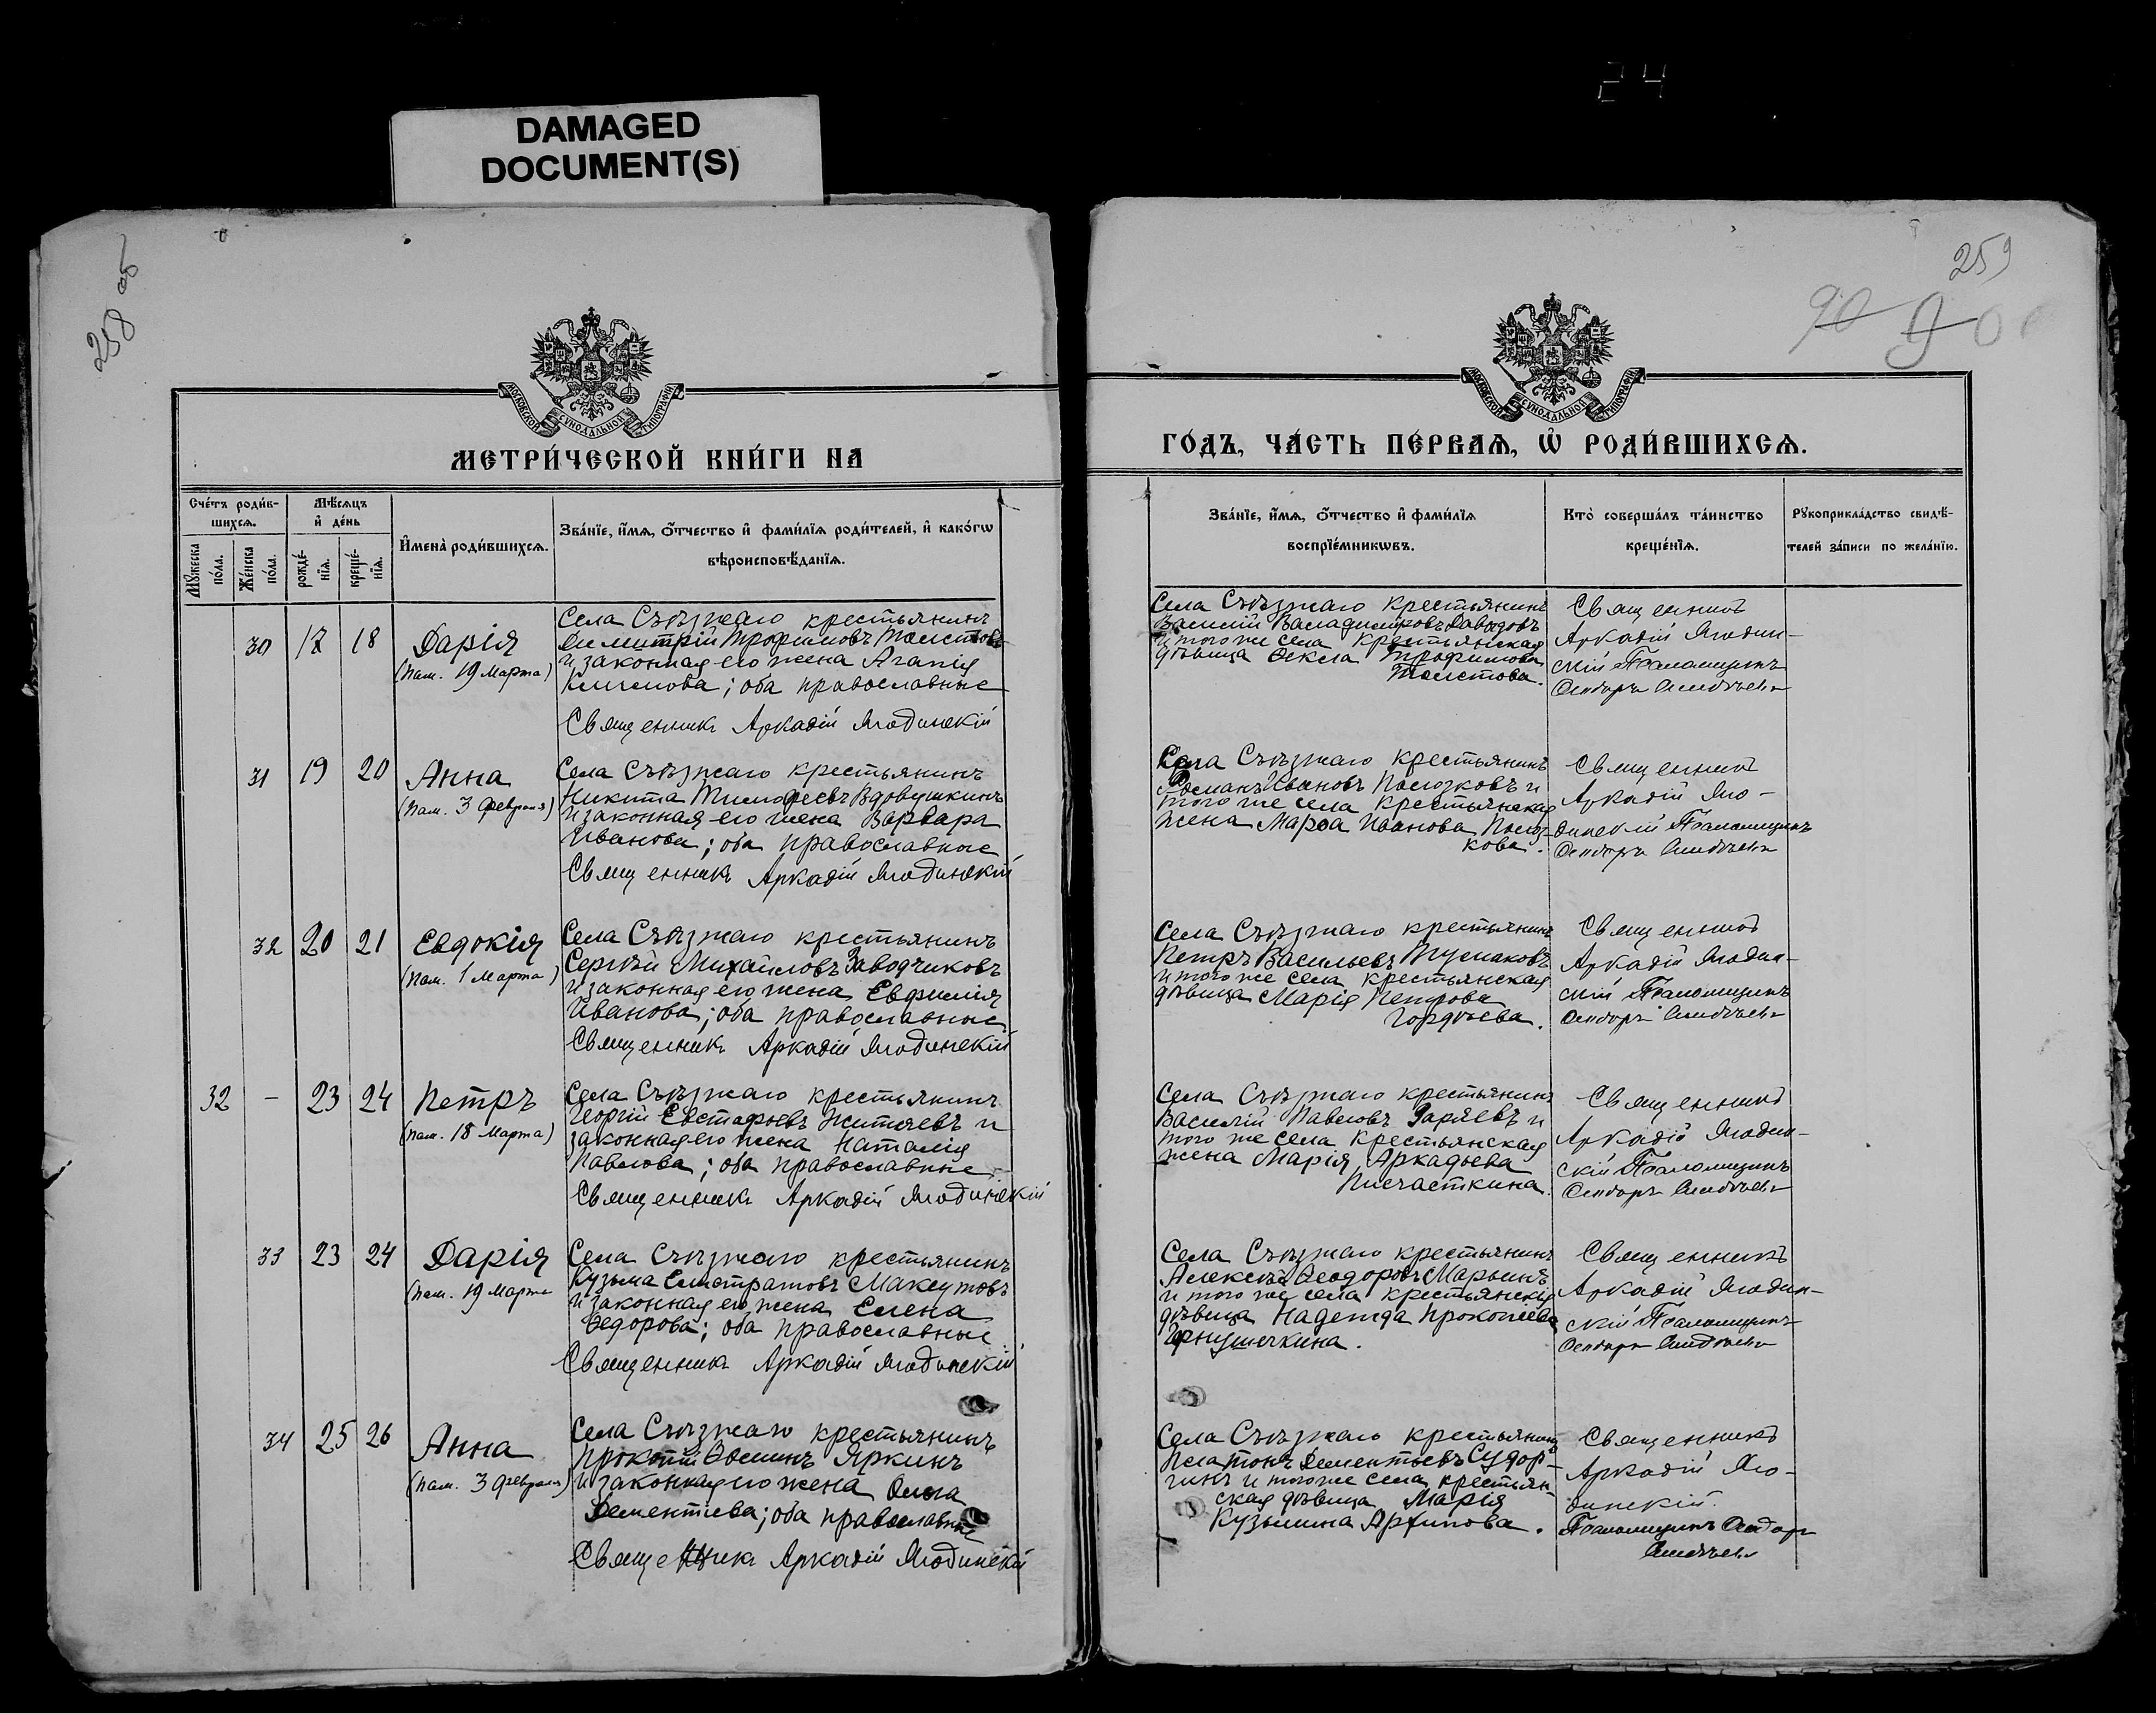 24
DAMAGED
DOCUMENT(S)
258 об
МОСКОВСКОЙ СѴНОДАЛЬНОЙ ТИПОГРАФІИ
МЕТРИ́ЧЕСКОЙ КНИ́ГИ НА
Сче́тъ роди́в-
шихсѧ.
Мѣ́сѧцъ
и҆ де́нь
Мꙋ́жеска
по́ла.
Же́нска
по́ла.
рожде́-
нїѧ.
креще́-
нїѧ.
И҆мена̀ роди́вшихсѧ.
Зва́нїе, и҆́мѧ, ѻ҆́тчество и҆ фами́лїѧ роди́телей, и҆ како́гѡ
вѣроисповѣ́данїѧ.
30 17 18 Дарія
(пам. 19 Марта)
Села Съѣзжаго крестьянинъ
Димитрій Трофимовъ Толстовъ
и законная его жена Агапія
Климова; оба православные
Священникъ Аркадій Ягодинскій
31 19 20 Анна
(пам. 3 февраля)
Села Съѣзжаго крестьянинъ
Никита Тимофеевъ Вдовушкинъ
и законная его жена Варвара
Иванова; оба православные
Священникъ Аркадій Ягодинскій
32 20 21 Евдокія
(пам. 1 Марта)
Села Съѣзжаго крестьянинъ
Сергѣй Михайловъ Заводчиковъ
и законная его жена Евфимія
Иванова; оба православные
Священникъ Аркадій Ягодинскій
32 – 23 24 Петръ
(пам. 18 Марта)
Села Съѣзжаго крестьянинъ
Георгій Евстафьевъ Житяевъ и
законная его жена Наталія
Павлова; оба православные
Священникъ Аркадій Ягодинскій
33 23 24 Дарія
(пам. 19 Марта
Села Съѣзжаго крестьянинъ
Кузьма Елистратовъ Максутовъ
и законная его жена Елена
Ѳедорова; оба православные
Священникъ Аркадій Ягодинскій
34 25 26 Анна
(пам. 3 февраля)
Села Съѣзжаго крестьянинъ
Прокопій Яркинъ
и законная его жена Ольга
Дементіева; оба православные
Священникъ Аркадій Ягодинскій
259
90 90
МОСКОВСКОЙ СѴНОДАЛЬНОЙ ТИПОГРАФІИ
ГО́ДЪ, ЧА́СТЬ ПЕ́РВАѦ, Ѡ҆ РОДИ́ВШИХСѦ.
Зва́нїе, и҆́мѧ, ѻ҆́тчество и҆ фами́лїѧ
воспрїе́мникѡвъ.
Кто̀ соверша́лъ та́инство
креще́нїѧ.
Рꙋкоприкла́дство свидѣ́-
телей за́писи по жела́нїю.
Села Съѣзжаго крестьянинъ
Василій Владимировъ Давыдовъ
и того же села крестьянская
дѣвица Ѳекла Трофимова
Толстова.
Священникъ
Аркадій Ягодин-
скій Псаломщикъ
Села Съѣзжаго крестьянинъ
Романъ Ивановъ Полозковъ и
того же села крестьянская
жена Марѳа Иванова Полоз-
кова.
Священникъ
Аркадій Яго-
динскій Псаломщикъ
Села Съѣзжаго крестьянинъ
Петръ Васильевъ
и того же села крестьянская
дѣвица Марія Петрова
Гордѣева.
Священникъ
Аркадій Ягодин-
скій Псаломщикъ
Села Съѣзжаго крестьянинъ
Василій Павловъ и
того же села крестьянская
жена Марія Аркадьева
Писчасткина.
Священникъ
Аркадій Ягодин-
скій Псаломщикъ
Села Съѣзжаго крестьянинъ
Алексѣй Ѳеодоровъ Марьинъ
и того же села крестьянская
дѣвица Надежда Прокопіева
Священникъ
Аркадій Ягодин-
скій Псаломщикъ
Села Съѣзжаго крестьянинъ
Платонъ Дементьевъ Судор-
гинъ и того же села крестьян-
ская дѣвица Марія
Кузьмина Архипова.
Священникъ
Аркадій Яго-
динскій.
Псаломщикъ